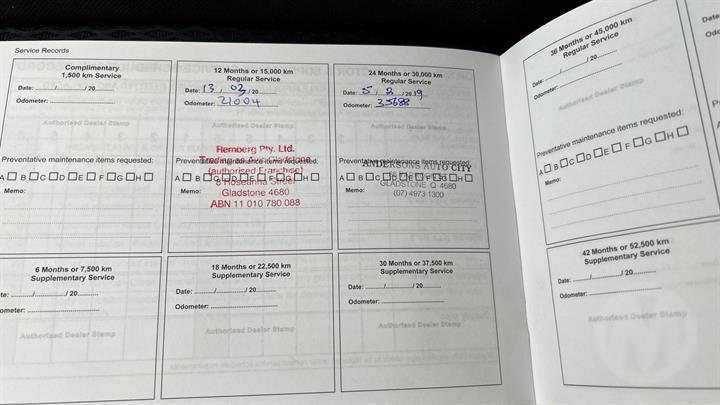 Service Records
Complimentary
1,500 km Service
Date: ......../......../ 20..........
Odometer: ..............................
Authorised Dealer Stamp
Preventative maintenance items requested:
A B C D E F G H
Memo:
12 Months or 15,000 km
Regular Service
Date: 13 / 03 / 20
Odometer: 21004
Authorised Dealer Stamp
Preventative maintenance items requested:
Remberg Pty. Ltd.
Trading as Avis Gladstone
(authorised Franchise)
A B C D E F G H
8 Roseanna Street
Memo:
Gladstone 4680
ABN 11 010 780 088
24 Months or 30,000 km
Regular Service
Date: 5 / 8 / 20 19
Odometer: 35688
Authorised Dealer Stamp
Preventative maintenance items requested:
ANDERSONS AUTO CITY
A B C D E F G H
GLADSTONE Q 4680
Memo:
(07) 4973 1300
36 Months or 45,000 km
Regular Service
Date: ......../......../ 20..........
Odometer: ..............................
Authorised Dealer Stamp
Preventative maintenance items requested:
A B C D E F G H
Memo:
6 Months or 7,500 km
Supplementary Service
te: ......../......../ 20..........
ometer: ..............................
Authorised Dealer Stamp
18 Months or 22,500 km
Supplementary Service
Date: ......../......../ 20..........
Odometer: ..............................
Authorised Dealer Stamp
30 Months or 37,500 km
Supplementary Service
Date: ......../......../ 20..........
Odometer: ..............................
Authorised Dealer Stamp
42 Months or 52,500 km
Supplementary Service
Date: ......../......../ 20..........
Odometer: ..............................
Authorised Dealer Stamp
Date
Odo